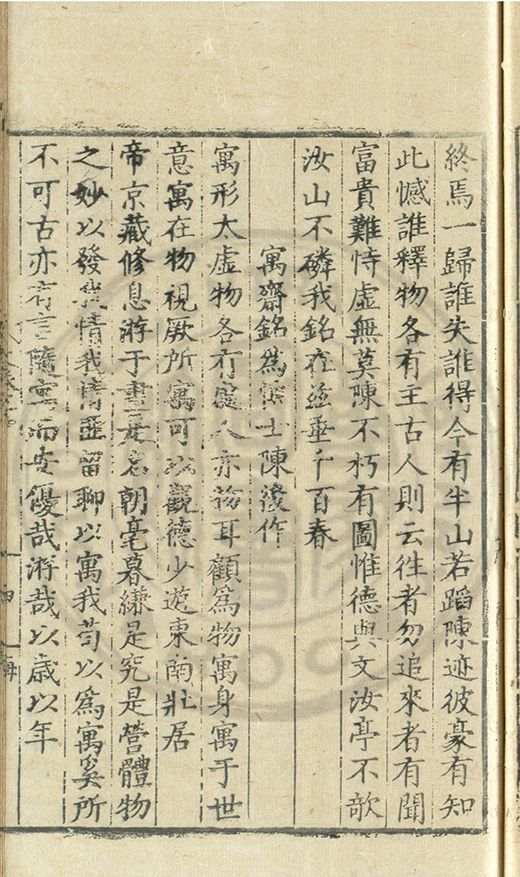 終焉一歸誰失誰得今有半山若蹈陳迹彼豪有知
此憾誰釋物各有主古人則云徃者勿追來者有聞
富貴難恃虛無莫陳不朽有圖惟德與文汝亭不欹
汝山不磷我銘在兹垂千百春
寓齋銘爲士陳後作
寓形太虛物各有寓人亦物耳顧爲物寓身寓于世
意寓在物視厥所寓可以觀德少遊東南壯居
帝京藏修息游于畫是名朝毫暮縑是究是營體物
之妙以發我情我情匪留聊以寓我茍以爲寓奚所
不可古亦有言隨寓而安優哉游哉以歲以年